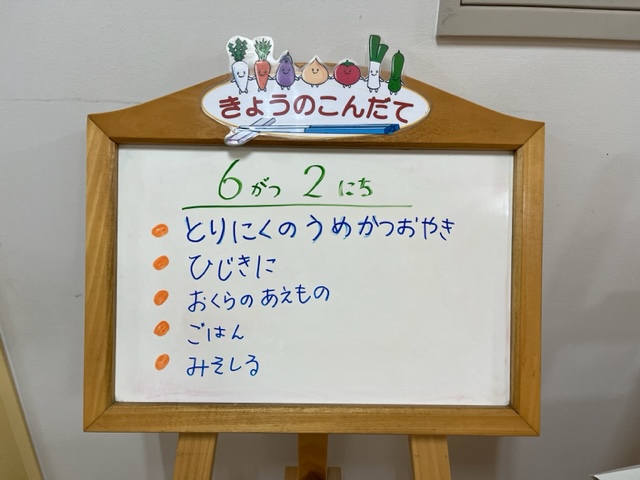 きょうのこんだて
6がつ 2にち
とりにくのうめかつおやき
ひじきに
おくらのあえもの
ごはん
みそしる